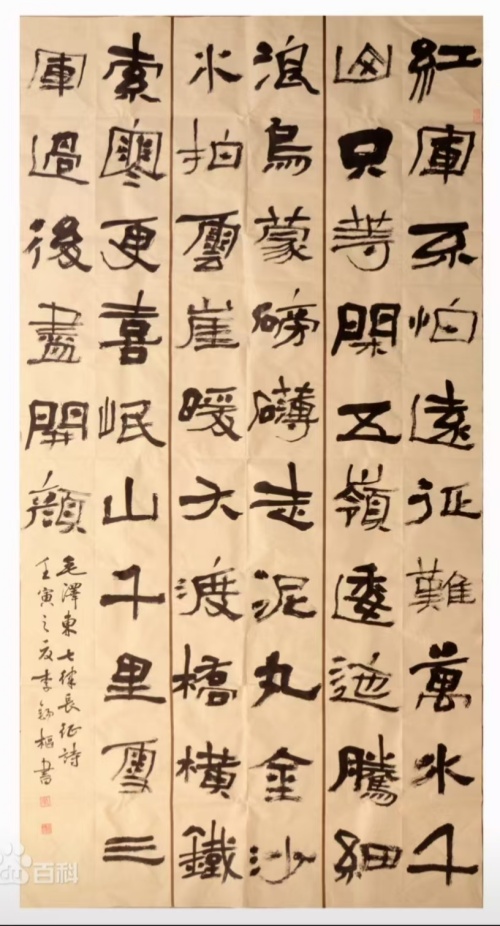 紅軍不怕遠征難萬水千
山只等閑五嶺逶迤騰細
浪烏蒙磅礴走泥丸金沙
水拍雲崖暖大渡橋橫鐵
索寒更喜岷山千里雪三
軍過後盡開顏
毛澤東七律長征詩
壬寅之夏李樞書
百科